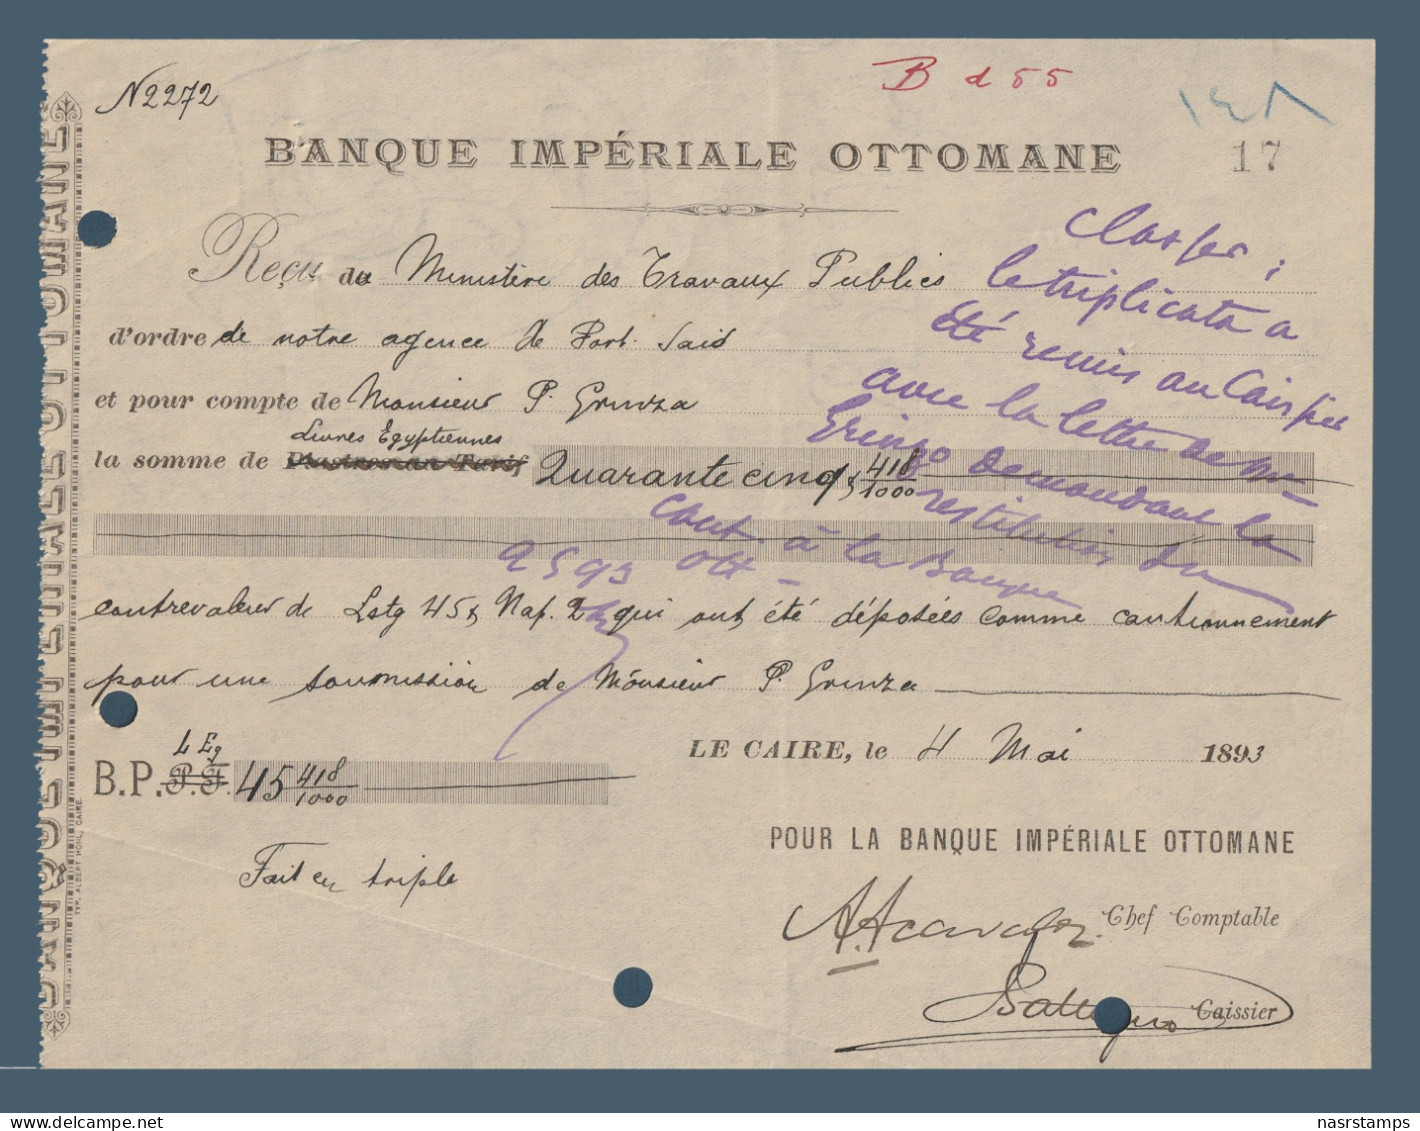 N 2272
B d 55
١٤٨
BANQUE IMPÉRIALE OTTOMANE
17
Reçu du Ministère des Travaux Publics
d'ordre de notre agence de Port Said
et pour compte de Monsieur P. Grinza
Livres Egyptiennes
la somme de Piastres au Tarif Quarante cinq & 418/1000
contrevaleur de Lstg 45 & Nap. 2 qui ont été déposées comme cautionnement
pour une soumission de Monsieur P. Grinza
LE CAIRE, le 4 Mai 1893
L Eg
B.P. P.T. 45 418/1000
Fait en triple
POUR LA BANQUE IMPÉRIALE OTTOMANE
Chef Comptable
Caissier
Classer :
le triplicata a
été remis au Caissier
avec la lettre de Mr
Grinzo demandant la
restitution du
caut. à la Banque
Ott
9 5 93
BANQUE IMPÉRIALE OTTOMANE
TYP. ALBERT HORN, CAIRE.
nasrstamps